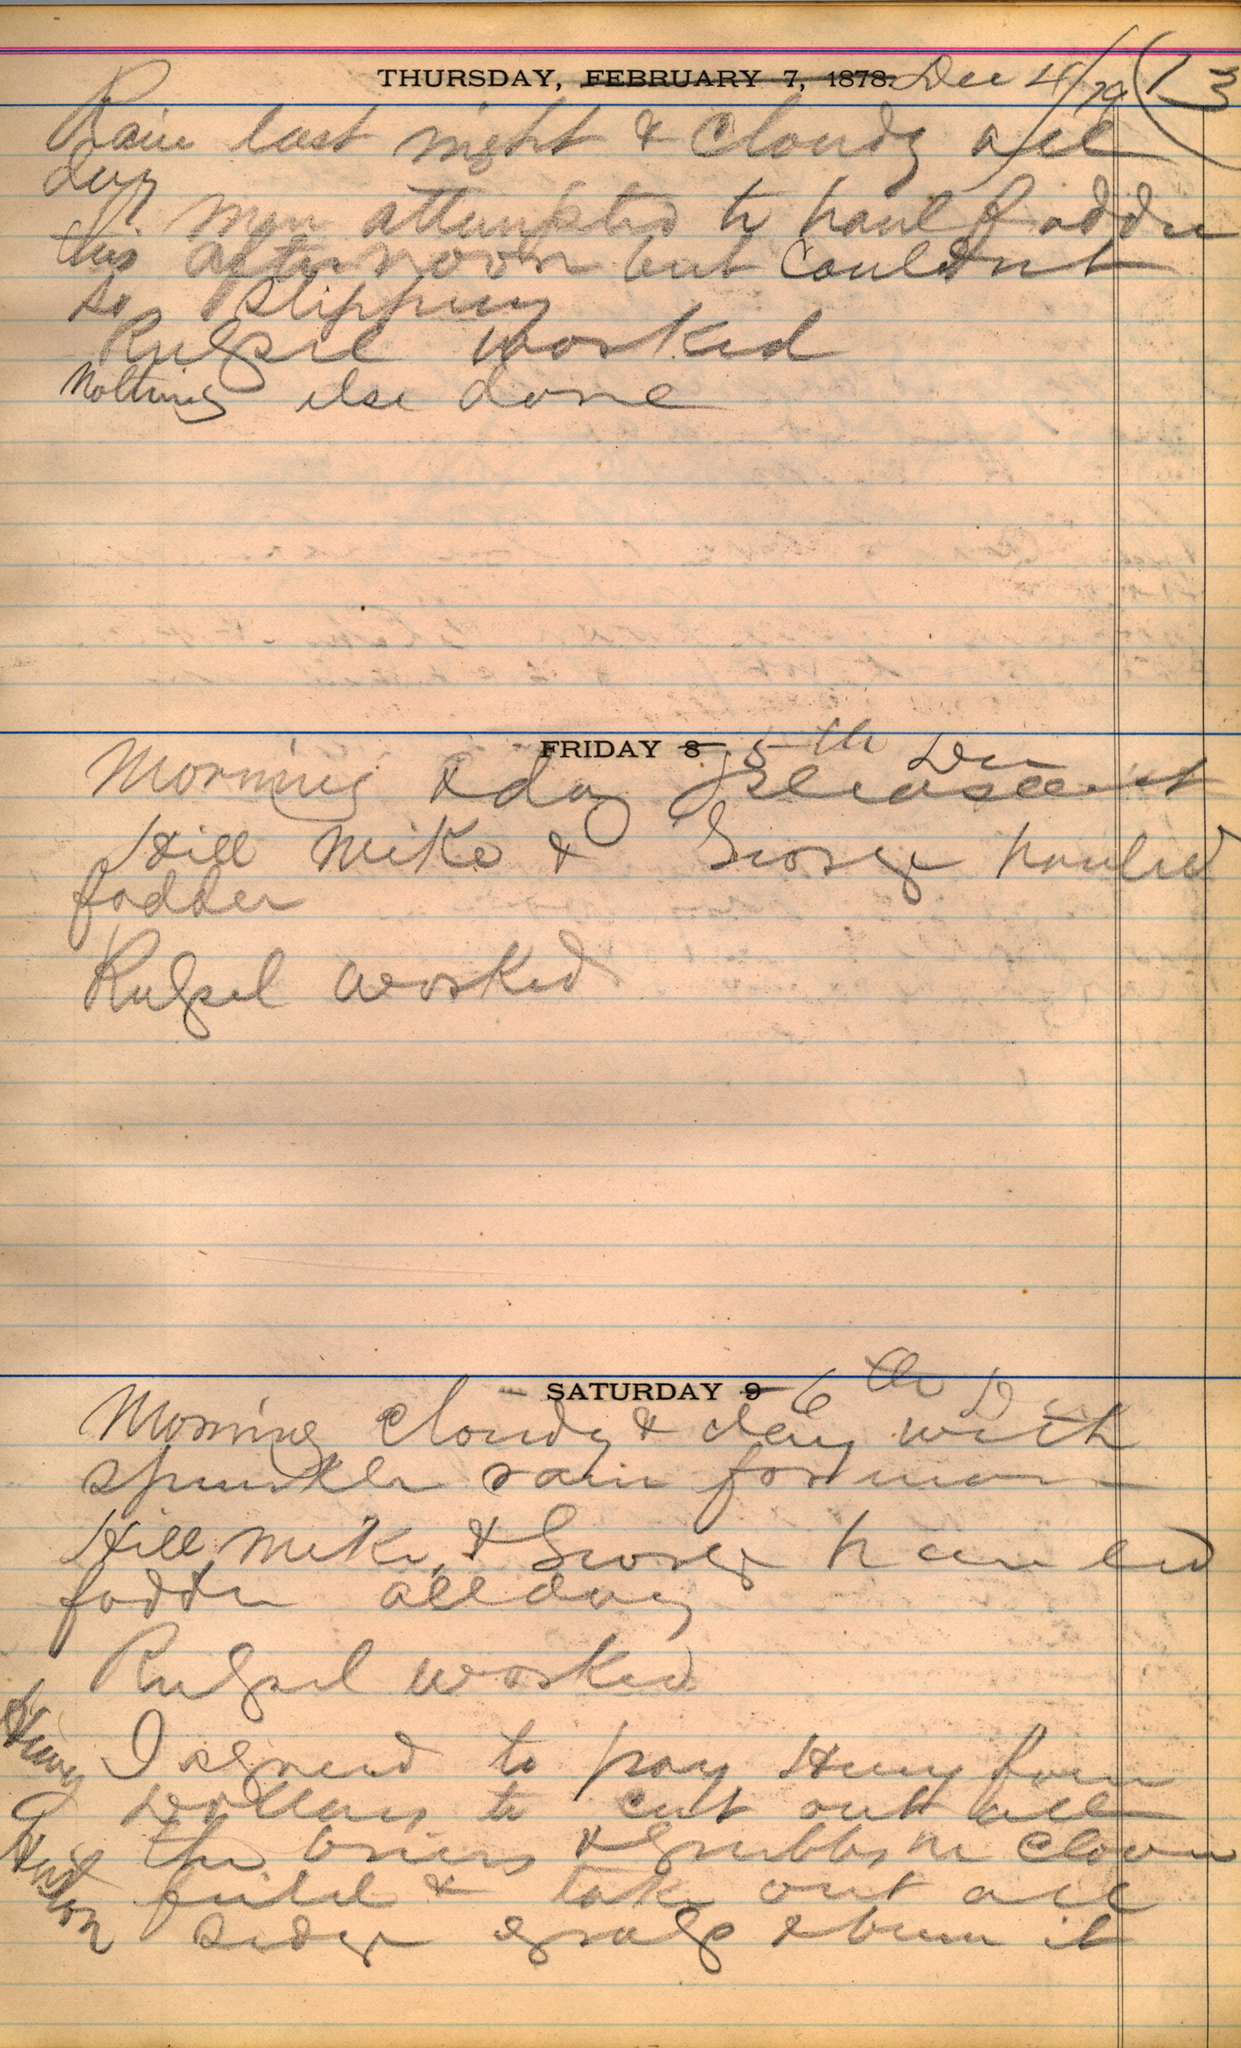 THURSDAY, FEBRUARY 7, 1878. Dec 4/79 (13
Rain last night & cloudy all
day
men attempted to haul fodder
this afternoon but couldnt
so slippery
Russel worked
Nothing else done
FRIDAY 8 5th Dec
Morning & day pleasant
Hill Mike & George hauled
fodder
Russel worked
SATURDAY 9 6th Dec
Morning cloudy & day with
sprinkle rain forenoon
Hill, Mike, & George hauled
fodder all day
Russel worked
I agreed to pay Henry four
Dollars to cut out all
the briers & grubbs in clover
field & take out all
sedge grass & burn it
Henry
Huston